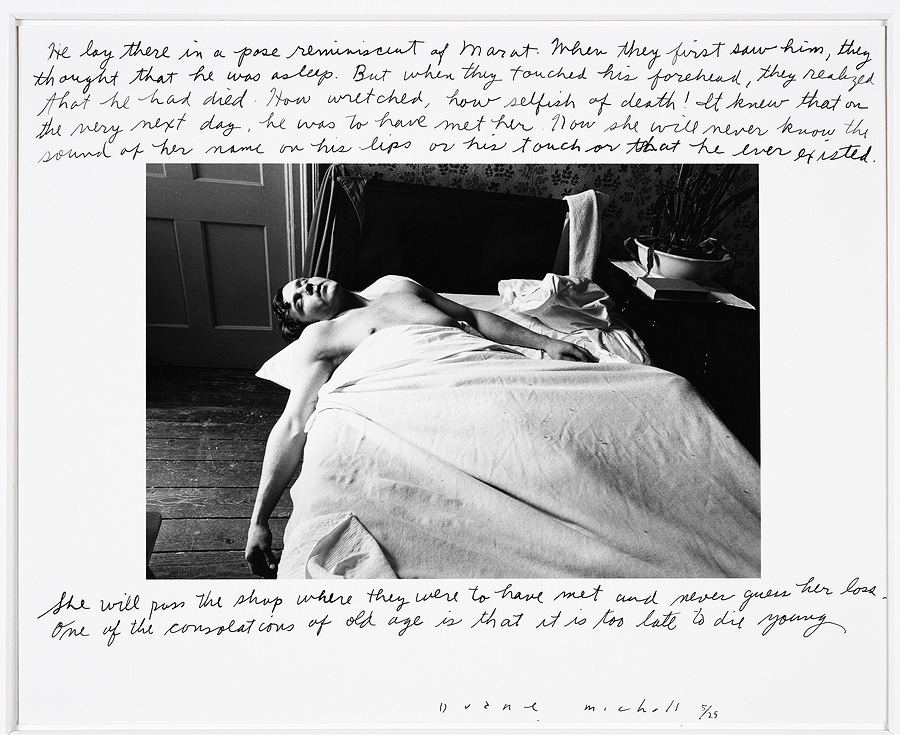 He lay there in a pose reminiscent of Marat. When they first saw him, they
thought that he was asleep. But when they touched his forehead, they realized
that he had died. How wretched, how selfish of death! It knew that on
the very next day, he was to have met her. Now she will never know the
sound of her name on his lips or his touch or that he ever existed.
She will pass the shop where they were to have met and never guess her loss.
One of the consolations of old age is that it is too late to die young
Duane Michals 5/25